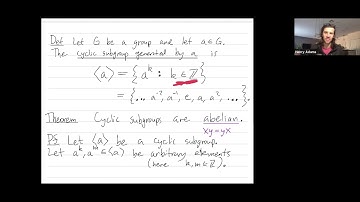 Henry Adams
Def Let G be a group and let a∈G.
The cyclic subgroup generated by a is
⟨a⟩ = { a^k : k∈ℤ }
= { ... a^-2, a^-1, e, a, a^2, ... }.
Theorem Cyclic subgroups are abelian.
xy=yx
Pf Let ⟨a⟩ be a cyclic subgroup.
Let a^k, a^m ∈ ⟨a⟩ be arbitrary elements
(here k,m∈ℤ).